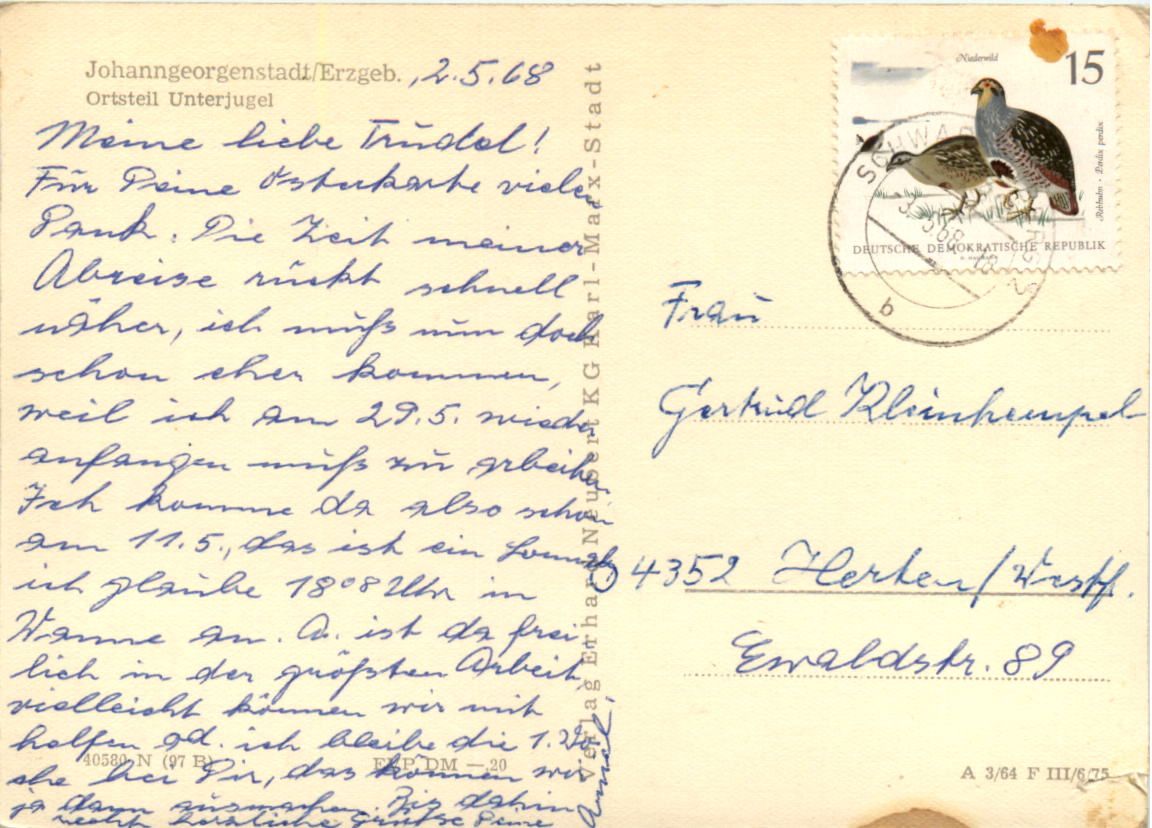 Johanngeorgenstadt/Erzgeb. , 2.5.68
Ortsteil Unterjugel
Meine liebe Trudel!
Für Deine Osterkarte vielen
Dank. Die Zeit meiner
Abreise rückt schnell
näher, ich muß nun doch
schon eher kommen,
weil ich am 29.5. wieder
anfangen muß zu arbeiten.
Ich komme da also schon
am 11.5., das ist ein Sonnab.,
ich glaube 18⁰⁸ Uhr in
Wanne an. A. ist da frei
lich in der größten Arbeit,
vielleicht können wir mit
helfen od. ich bleibe die 1. Wo
che bei Dir, das können wir
ja dann ausmachen. Bis dahin
recht herzliche Grüße Deine
40580 N (97 B) EVP DM —.20
Verlag Erhard Neubert KG Karl-Marx-Stadt
Niederwild
15
Rebhuhn · Perdix perdix
DEUTSCHE DEMOKRATISCHE REPUBLIK
b
Frau
Gertrud Kleinhempel
4352 Herten/Westf.
Ewaldstr. 89
A 3/64 F III/6/75